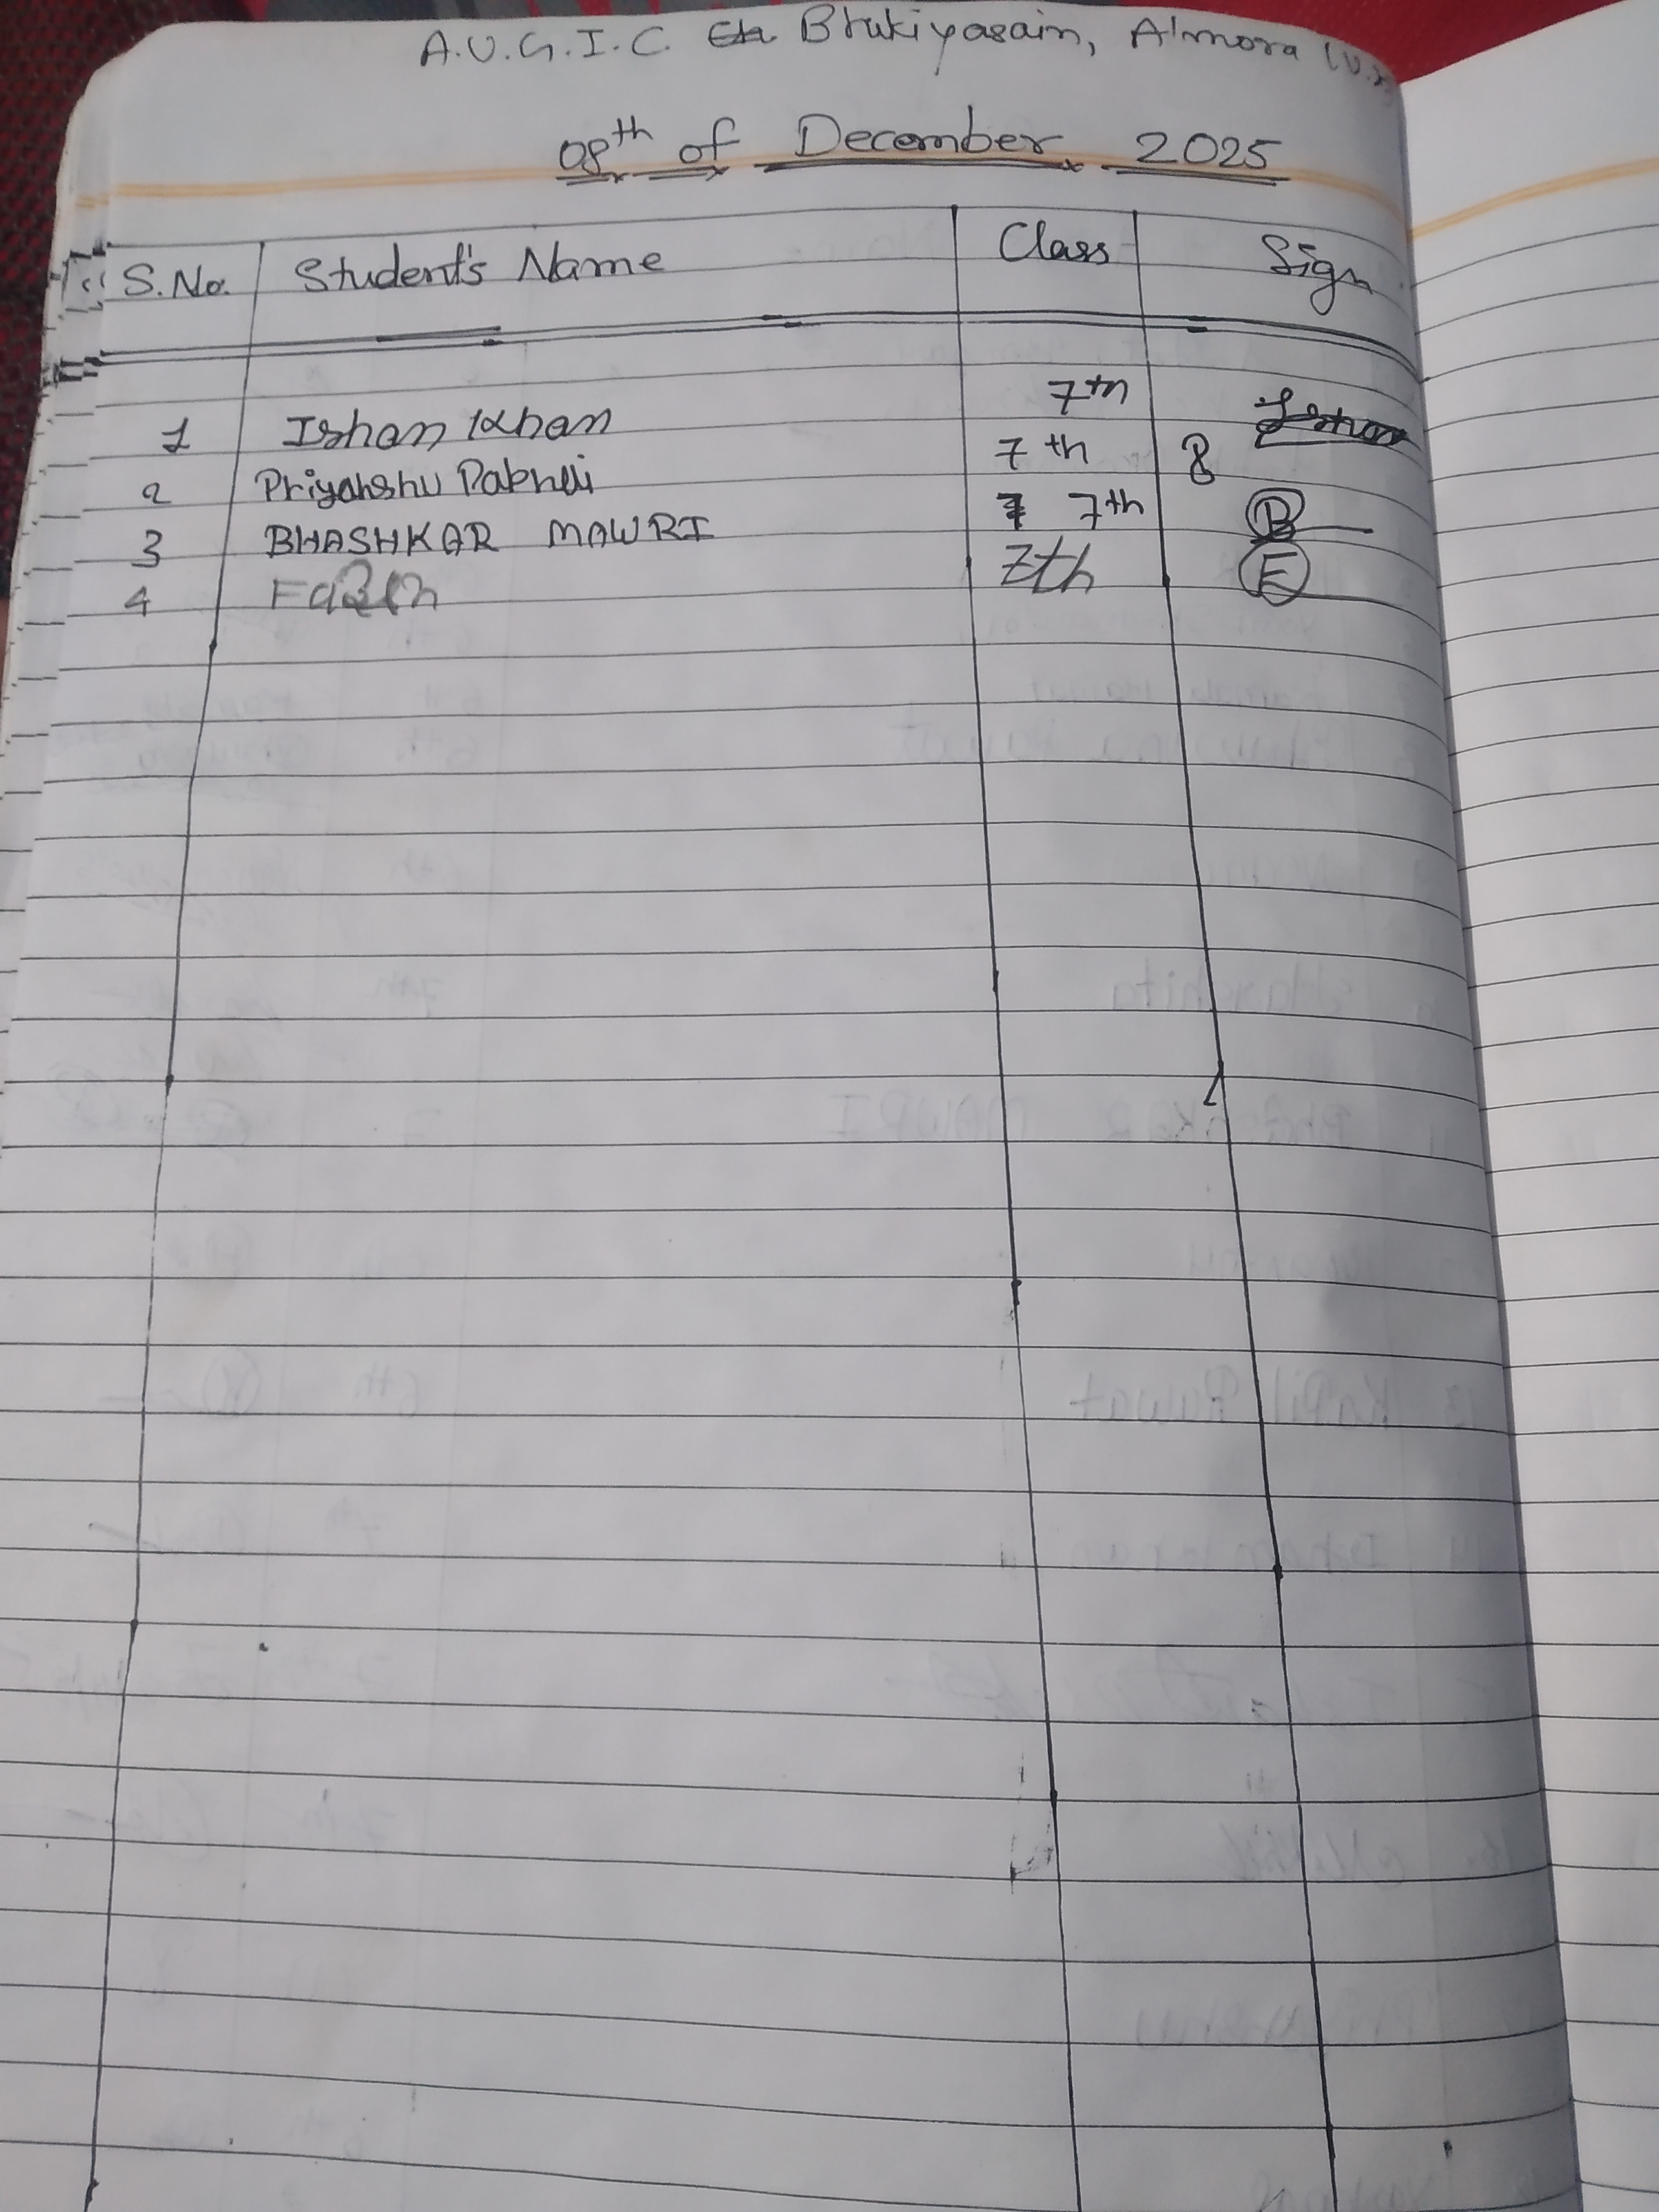 A.U.G.I.C. Bhikiyasain, Almora
08th of December 2025
S.No. Student's Name Class Sign
1 Ishan Khan 7th Ishan
2 Priyanshu 7th
3 BHASHKAR MAWRI 7th B
4 7th F